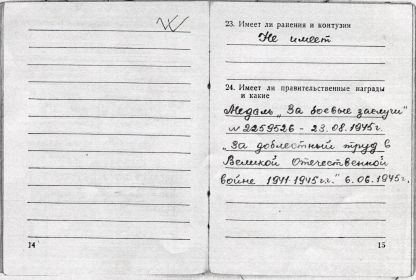 23. Имеет ли ранения и контузии
Не имеет
24. Имеет ли правительственные награды
и какие
Медаль „За боевые заслуги"
№ 2259526 - 23.08.1945г.
„За доблестный труд в
Великой Отечественной
войне 1941-1945г.г." 6.06.1945г.
14
15